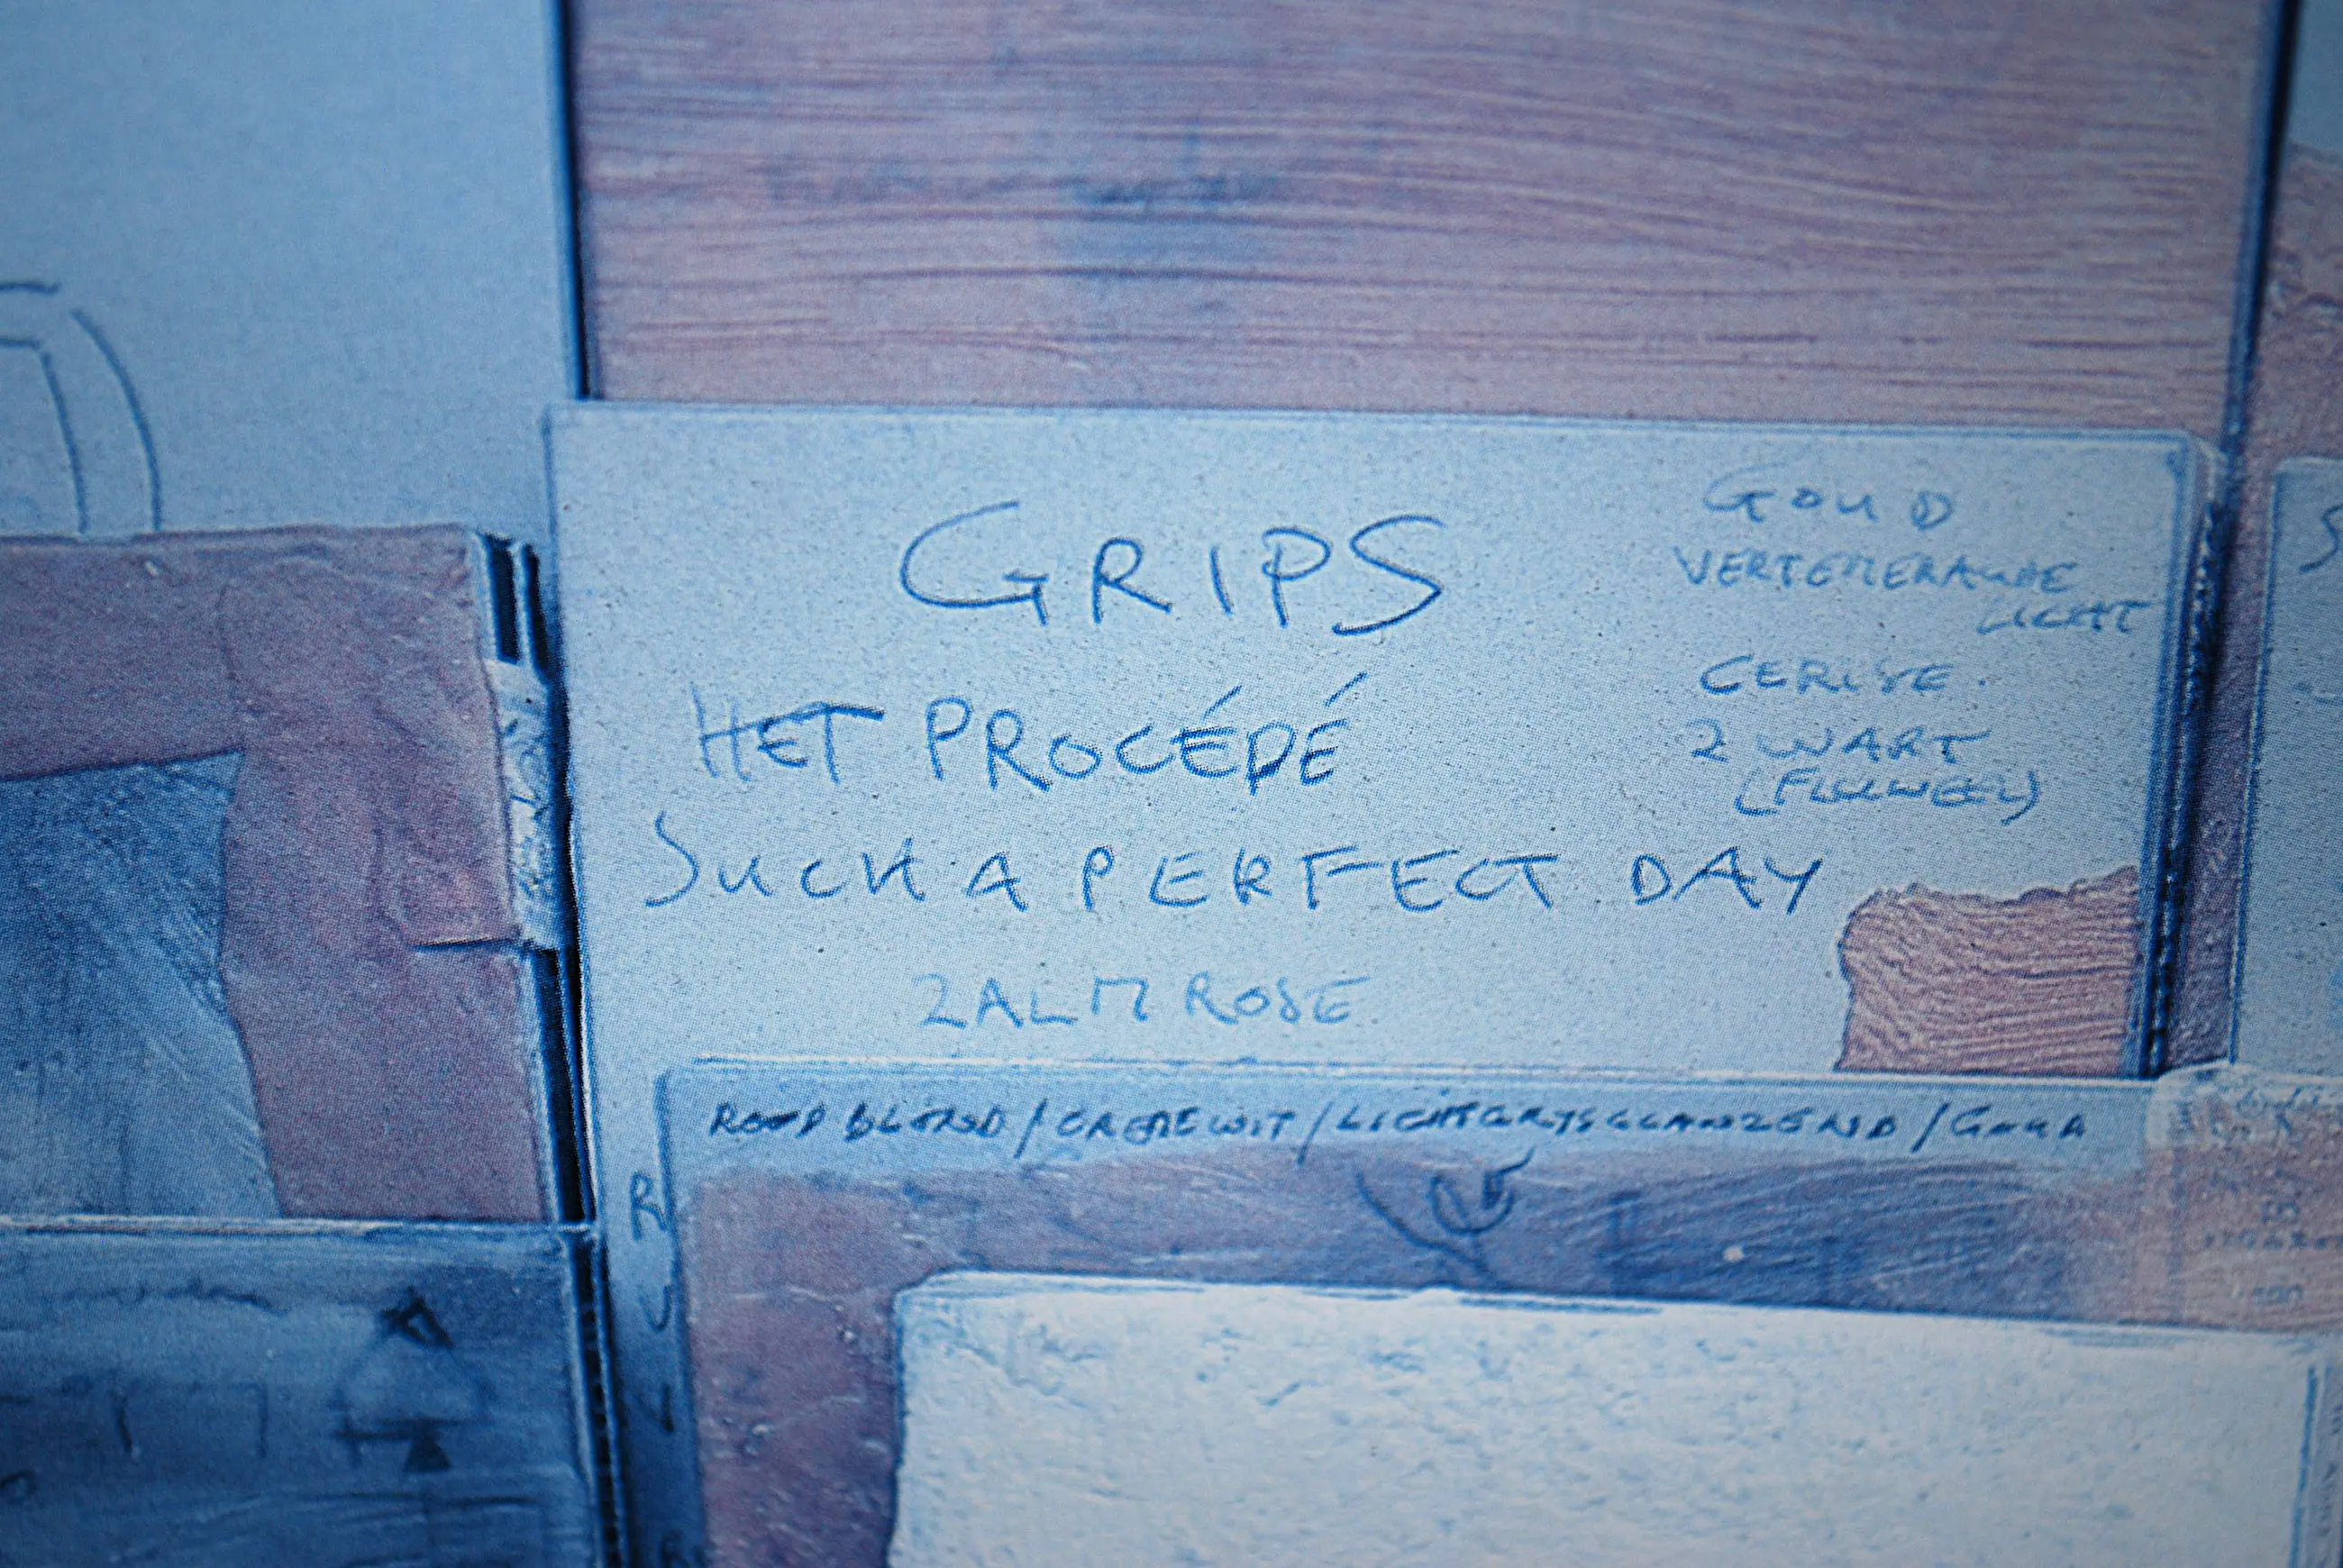 GRIPS
HET PROCÉDÉ
SUCH A PERFECT DAY
ZALM ROSE
GOUD
VERTEMERAUDE
LICHT
CERISE.
ZWART
(FLUWEEL)
ROOD BLOND / CREMEWIT / LICHTGRYSGLANZEND /